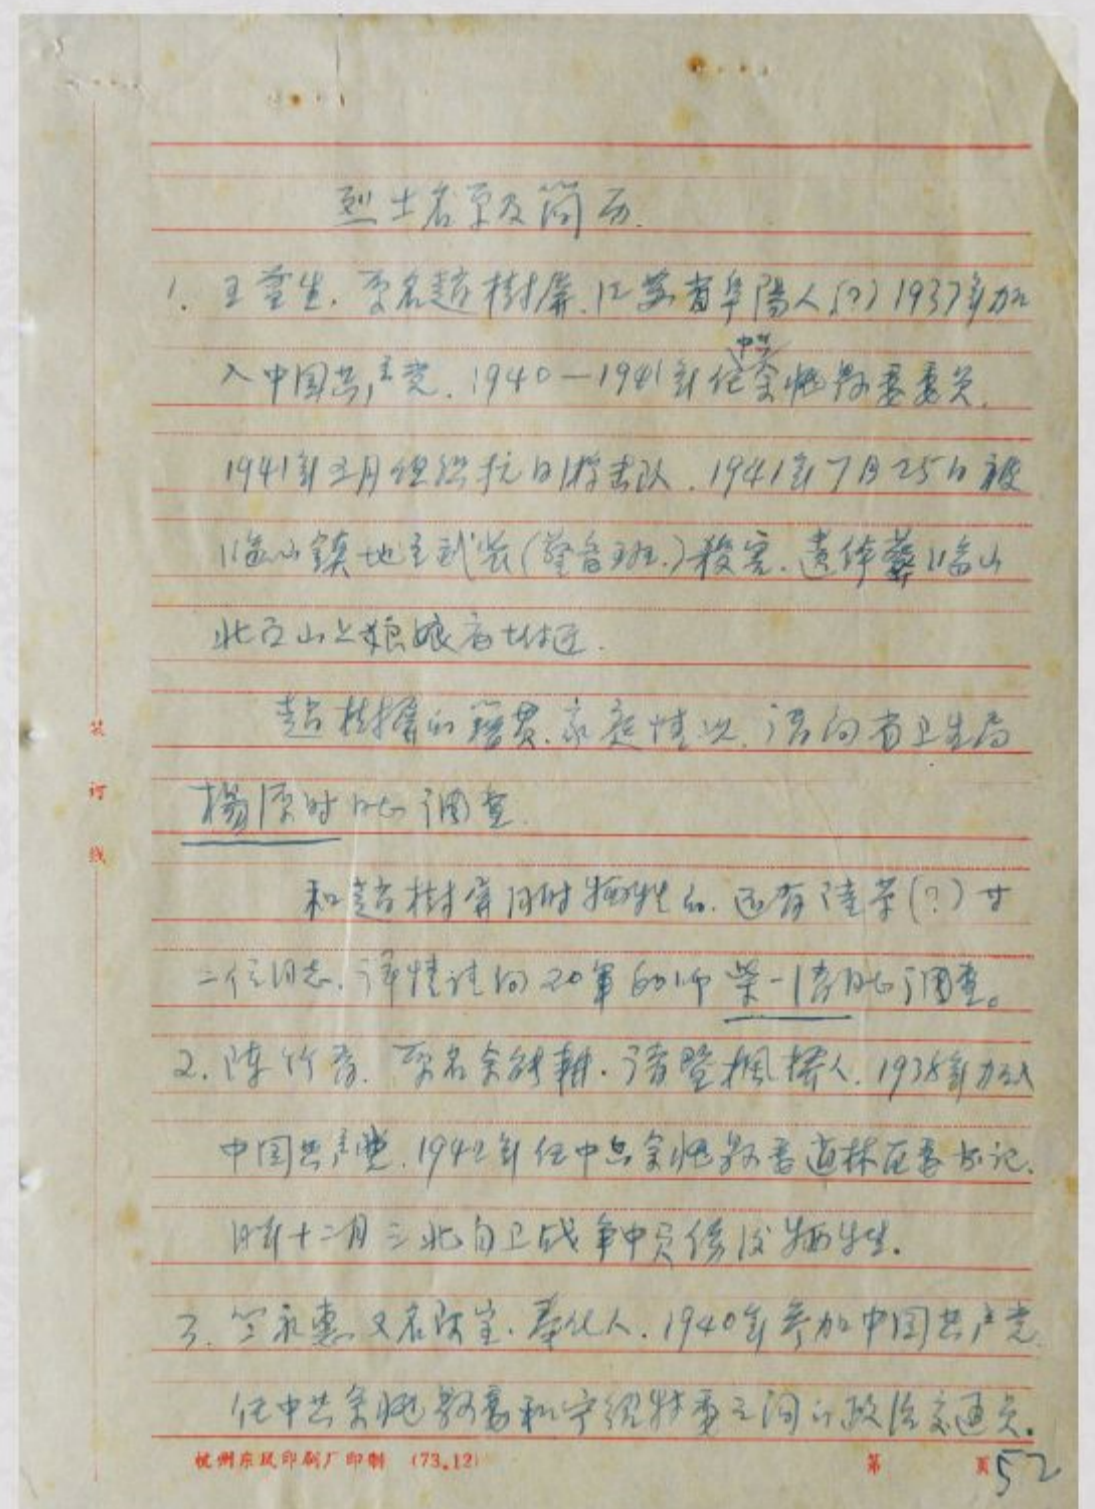 烈士名单及简历.
1. 王萱生. 原名趙樹屏. 江苏省阜陽人(?) 1937年加
中共
入中国共产党. 1940—1941年任余姚县委委员.
1941年五月组织抗日游击队. 1941年7月25日被
临山鎮地主武装(警备班.)殺害. 遗体葬临山
北面山上娘娘庙附近.
趙樹屏的籍贯、家庭情况, 请向省卫生局
楊 同志调查.
和趙樹屏同时牺牲的. 还有 (?) 廿
二位同志. 详情请向20軍60师 同志调查。
2. 陈竹 . 原名余 耕. 诸暨楓橋人. 1938年加入
中国共产党. 1942年任中共余姚县委 林区委书记.
同年十二月三北自卫战争中负伤后牺牲.
3. 竺永惠 又名 . 奉化人. 1940年参加中国共产党.
任中共余姚县委和宁绍特委之间的政治交通员.
装订线
杭州东风印刷厂印制 (73.12)
第 页 52